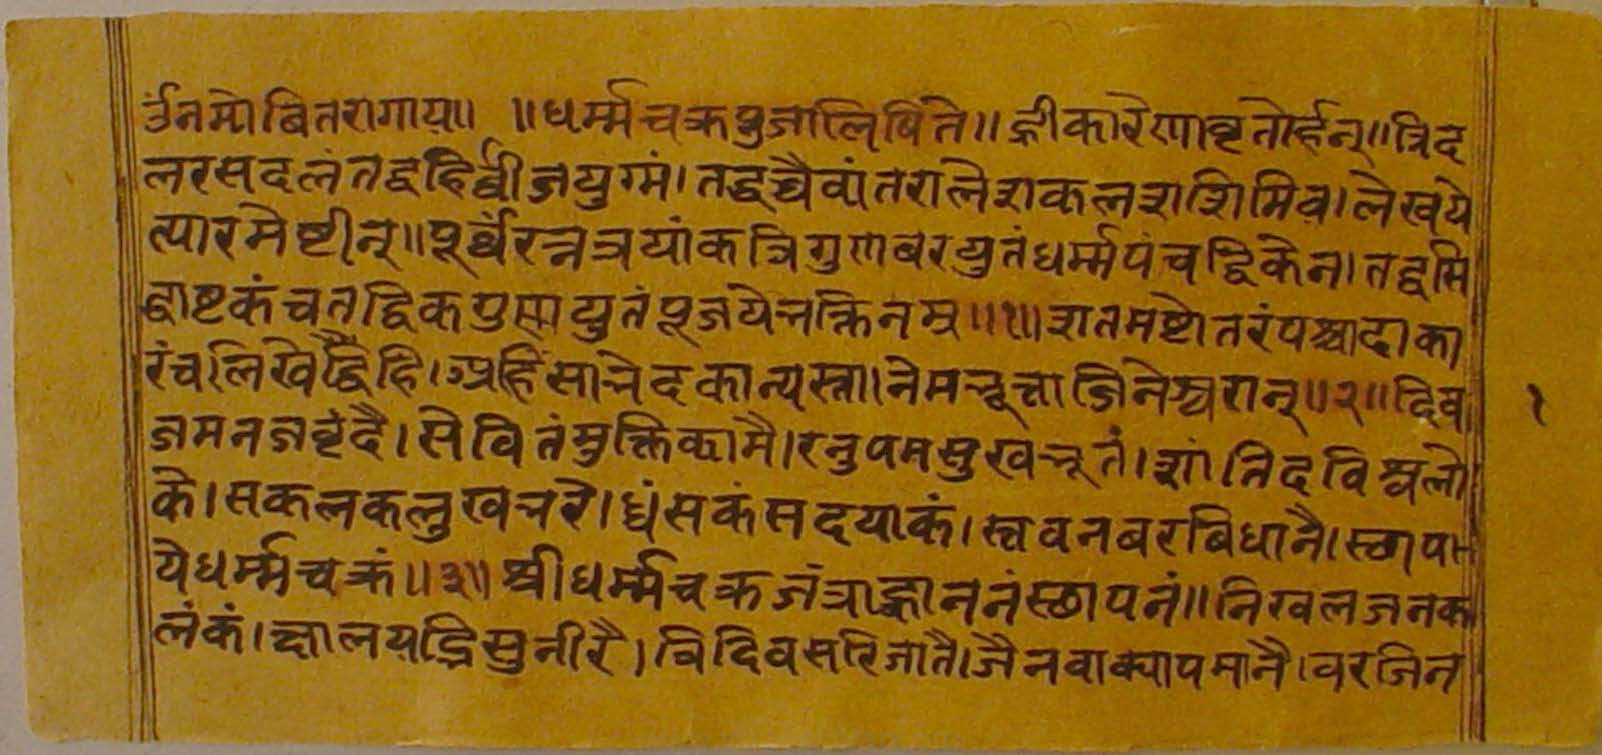 उँनमोबितरागाय॥ ॥धर्म्मचक्रपुजालिषिते॥ह्रीकारेणावृतोर्हन्॥त्रिद
लरसदलंतद्वहिर्व्वीजयुग्मं।तद्वच्चैवांतरालेशकलशशिमिव।लेखये
त्पारमेष्टीन्॥पूर्व्वैरन्नत्रयांकत्रिगुणबरयुतंधर्म्मपंचद्विकेन।तद्वमि
द्वाष्टकंचतद्विकगुणयुतंपूजयेत्नक्तिनम्र॥१॥शतमष्टोतरंपश्चादाका
रंचलिखेद्वैहि।अहिंसात्नेदकान्यस्ता।नेमत्नूत्वाजिनेश्वरान्॥२॥दिव
जमनजवृंदै।सेवितंमुक्तिकामै।रनुपमसुखत्नूतं।शांतिदविश्वलो
के।सकलकलुखत्नरे।ध्वंसकंसदयाकं।स्तवनबरबिधानै।स्छापा
येधर्म्मचक्रं॥३॥श्रीधर्म्मचक्रजंत्राह्वाननंस्छापनं॥निखलजनक
लंकं।क्षालयद्भिसुनीरै।त्रिदिवसरिजातै।जैनवाक्यापमानै।वरजिन
१